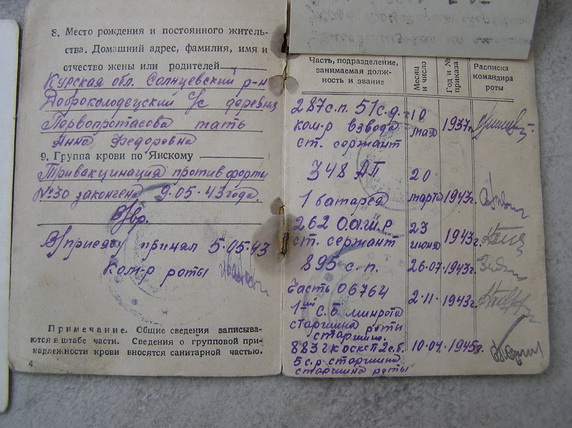 8. Место рождения и постоянного житель-
ства. Домашний адрес, фамилия, имя и
отчество жены или родителей
Курская обл. Солнцевский р-н
Доброколодецский с/с деревня
Первопротасова мать
Анна Федоровна
9. Группа крови по Янскому
Тривакцинация против форту
№30 закончена 9.05.43 года.
В/вр.
В/присягу принял 5.05.43
Ком-р роты
Примечание. Общие сведения записыва-
ются в штабе части. Сведения о групповой при-
надлежности крови вносятся санитарной частью.
4
Часть, подразделение,
занимаемая долж-
ность и звание
Месяц
и число
Год и №
приказа
Расписка
командира
роты
287 с.п. 51 с.д. 10
ком-р взвода мая 1937г.
ст. сержант
348 АП 20
1 батарея марта 1943г.
262 23
ст. сержант июня 1943г.
895 с.п. 26.07.1943г.
часть 06764 2.11.1943г.
1ый с.б. минрота
старшина роты
старшина.
883 2 с.б. 10.04.1945г.
5 с.р. старшина
старшина роты